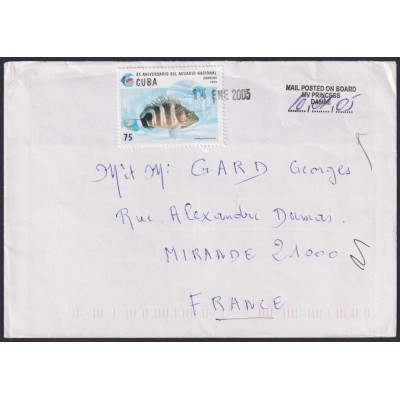 35 ANIVERSARIO DEL ACUARIO NACIONAL
CUBA
75
14 ENE 2005
MAIL POSTED ON BOARD
MV PRINCESS
DANAE
Mr et Me GARD Georges
Rue Alexandre Dumas.
MIRANDE 21000
FRANCE